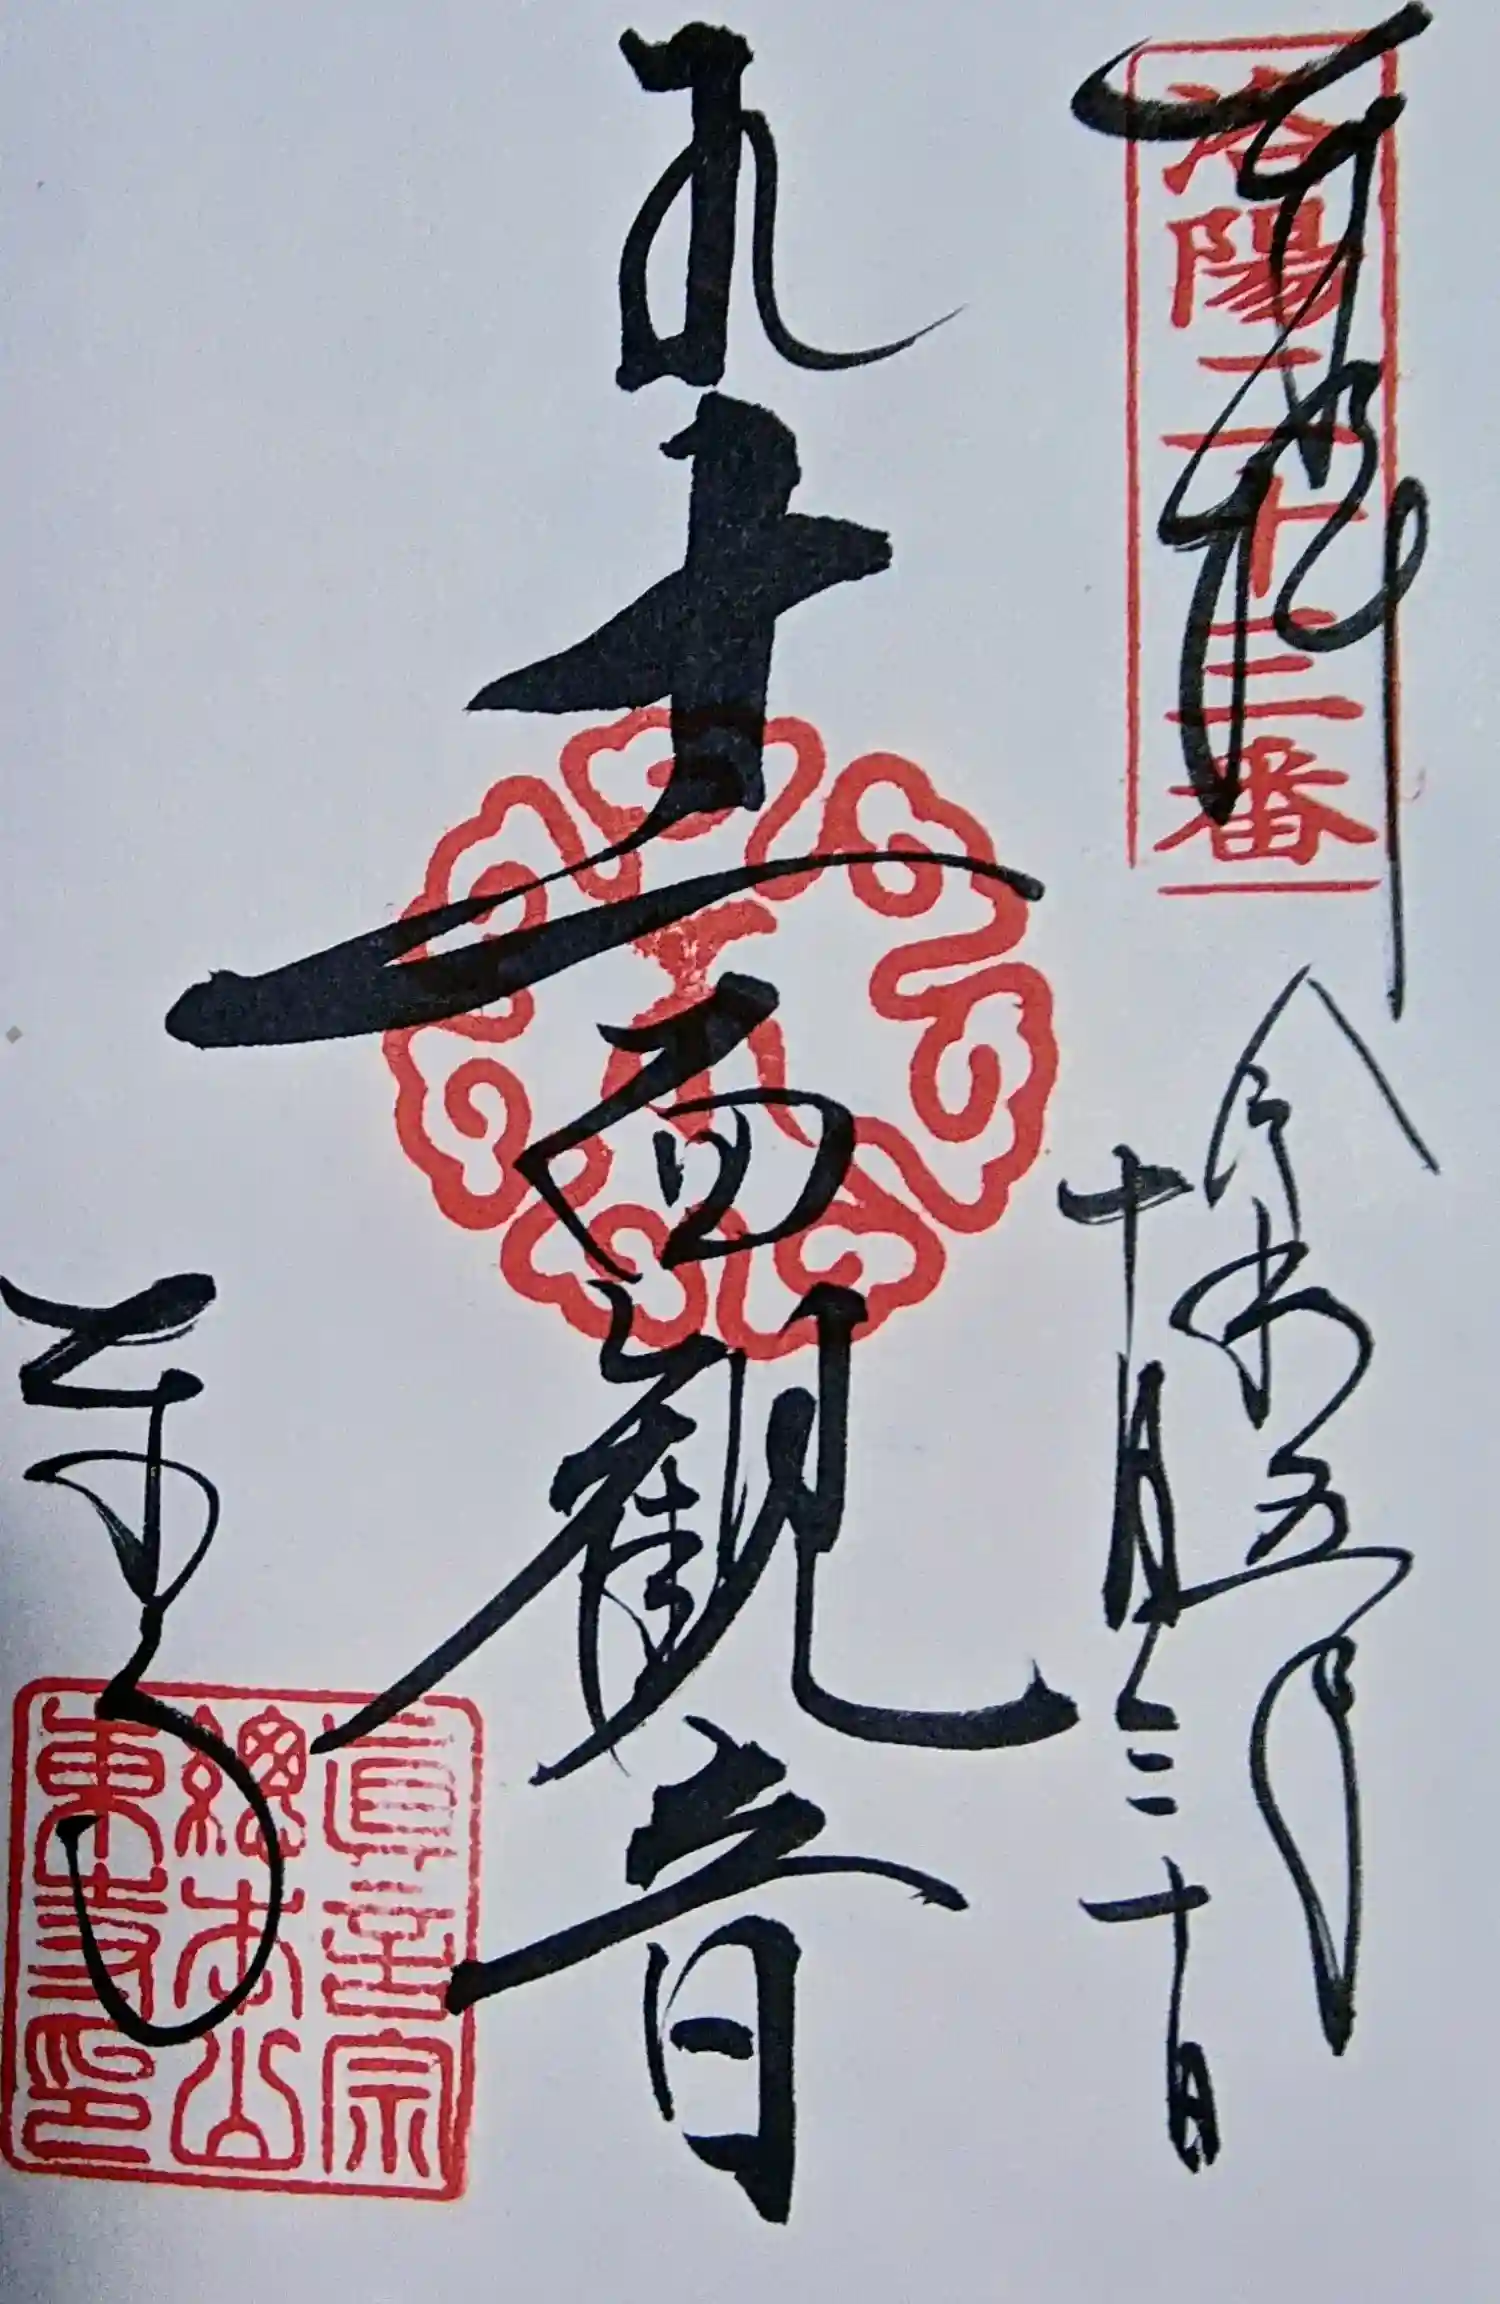 洛陽二十三番
奉拝
令和五年
十月三十日
十一面観音
東寺
真言宗
總本山
東寺印